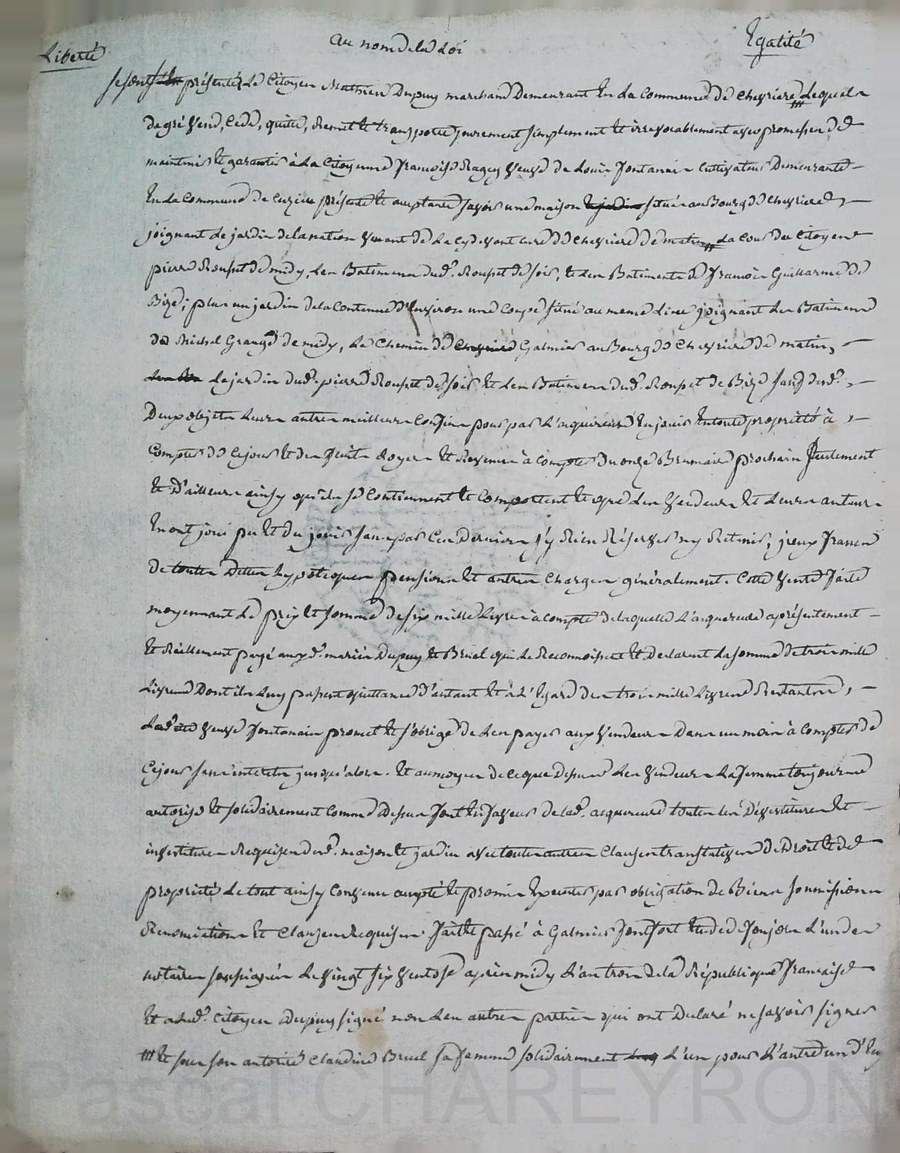 Liberté
au nom de la Loi
Egalité
se sont présentés Le Citoyen Mathieu Dupuy marchand Demeurant En La Commune de Chevriere /// Lequel
de gré Vend, Cede, quite, Remet et transporte purement simplement et irrevocablement avec promesse de
maintenir et garantir à La Citoyenne françoise Ragey Veuve de Louis fontanai Cultivateur Demeurante
En La Commune de Cuzieu présente et acceptante savoir une maison et jardin situé au Bourg de Chevriere,
joignant Le jardin de la nation venant de La cy devant cure de Chevriere de matin, La Cour du Citoyen
pierre Rousset de midy, Les Batiments dud. Rousset de soir, & Les Batiments de françois Guillarme de
Bize; plus un jardin de la Contenue d'Environ une Coupe situé au meme Lieu joignant Les Batiments
de Michel Grangé de midy, Le Chemin de Galmier au Bourg de Chevriere de matin,
Le jardin dud. pierre Rousset de soir Et Les Batiments dud. Rousset de Bize sauf desd.
Deux objets Leurs autres meilleurs Confins pour par L'acquereuse En jouir En toute propriété à
Compter de Ce jour Et des fruits Loyers Et Revenus à Compter du onze Brumaire prochain seulement
Et D'ailleurs ainsy qu'ils se Contiennent Et Comportent Et que Les Vendeurs Et Leurs auteurs
En ont joui pu Et du jouir sans par Ces Derniers s'y Rien Réserver ny Retenir, iceux francs
de toutes Dettes hypoteques pensions Et autres Charges généralement. Cette Vente faite
moyennant Le prix Et somme de six mille Livres à compte de laquelle L'acquereuse a présentement
Et Réellement payé aux d. mariés Dupuy Et Bruel qui Le Reconnoissent Et Declarent La somme de trois mille
Livres Dont ils Luy passent quittance D'autant Et à L'Egard des trois mille Livres Restantes,
Lad. Veuve fontanai promet Et s'oblige de Les payer aux Vendeurs Dans un mois à Compter de
Ce jour sans interets jusqu'alors. Et au moyen de ce que Dessus Les Vendeurs La femme toujours
autorisé Et solidairement Comme Dessus font En faveur de lad. acquereuse toutes Les Devestitures Et
investitures Requises desd. maison Et jardin avec toutes autres Clauses translatives de Droit Et de
propriété Le tout ainsy Convenu accepté Et promis Executer par obligation de Biens soumissions
Renonciations Et Clauses Requises. fait Et passé à Galmier fontfort Etude de L'un des
notaires soussignés Le Vingt six Ventose après midy L'an trois de la République française
Et a Led. Citoyen Dupuy signé non Les autres parties qui ont Declaré ne savoir signer
/// Et sous son autorité Claudine Bruel sa femme solidairement L'un pour L'autre un d'Eux
Pascal CHAREYRON